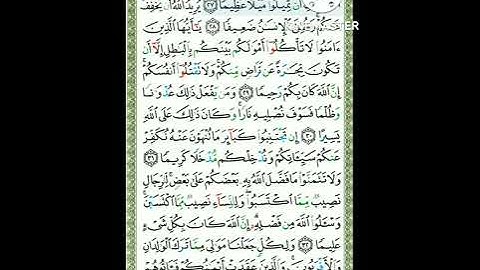 أَن تَمِيلُوا۟ مَيْلًا عَظِيمًا ٢٧ يُرِيدُ ٱللَّهُ أَن يُخَفِّفَ
عَنكُمْ وَخُلِقَ ٱلْإِنسَٰنُ ضَعِيفًا ٢٨ يَٰٓأَيُّهَا ٱلَّذِينَ
ءَامَنُوا۟ لَا تَأْكُلُوٓا۟ أَمْوَٰلَكُم بَيْنَكُم بِٱلْبَٰطِلِ إِلَّآ أَن
تَكُونَ تِجَٰرَةً عَن تَرَاضٍ مِّنكُمْ وَلَا تَقْتُلُوٓا۟ أَنفُسَكُمْ
إِنَّ ٱللَّهَ كَانَ بِكُمْ رَحِيمًا ٢٩ وَمَن يَفْعَلْ ذَٰلِكَ عُدْوَٰنًا
وَظُلْمًا فَسَوْفَ نُصْلِيهِ نَارًا وَكَانَ ذَٰلِكَ عَلَى ٱللَّهِ
يَسِيرًا ٣٠ إِن تَجْتَنِبُوا۟ كَبَآئِرَ مَا تُنْهَوْنَ عَنْهُ نُكَفِّرْ
عَنكُمْ سَيِّـَٔاتِكُمْ وَنُدْخِلْكُم مُّدْخَلًا كَرِيمًا ٣١
وَلَا تَتَمَنَّوْا۟ مَا فَضَّلَ ٱللَّهُ بِهِۦ بَعْضَكُمْ عَلَىٰ بَعْضٍ لِّلرِّجَالِ
نَصِيبٌ مِّمَّا ٱكْتَسَبُوا۟ وَلِلنِّسَآءِ نَصِيبٌ مِّمَّا ٱكْتَسَبْنَ
وَسْـَٔلُوا۟ ٱللَّهَ مِن فَضْلِهِۦٓ إِنَّ ٱللَّهَ كَانَ بِكُلِّ شَىْءٍ
عَلِيمًا ٣٢ وَلِكُلٍّ جَعَلْنَا مَوَٰلِىَ مِمَّا تَرَكَ ٱلْوَٰلِدَانِ
وَٱلْأَقْرَبُونَ وَٱلَّذِينَ عَقَدَتْ أَيْمَٰنُكُمْ فَـَٔاتُوهُمْ